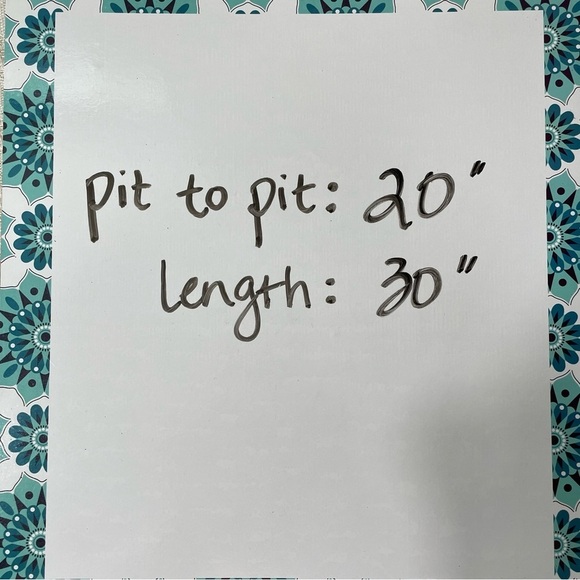 pit to pit: 20"
length: 30"